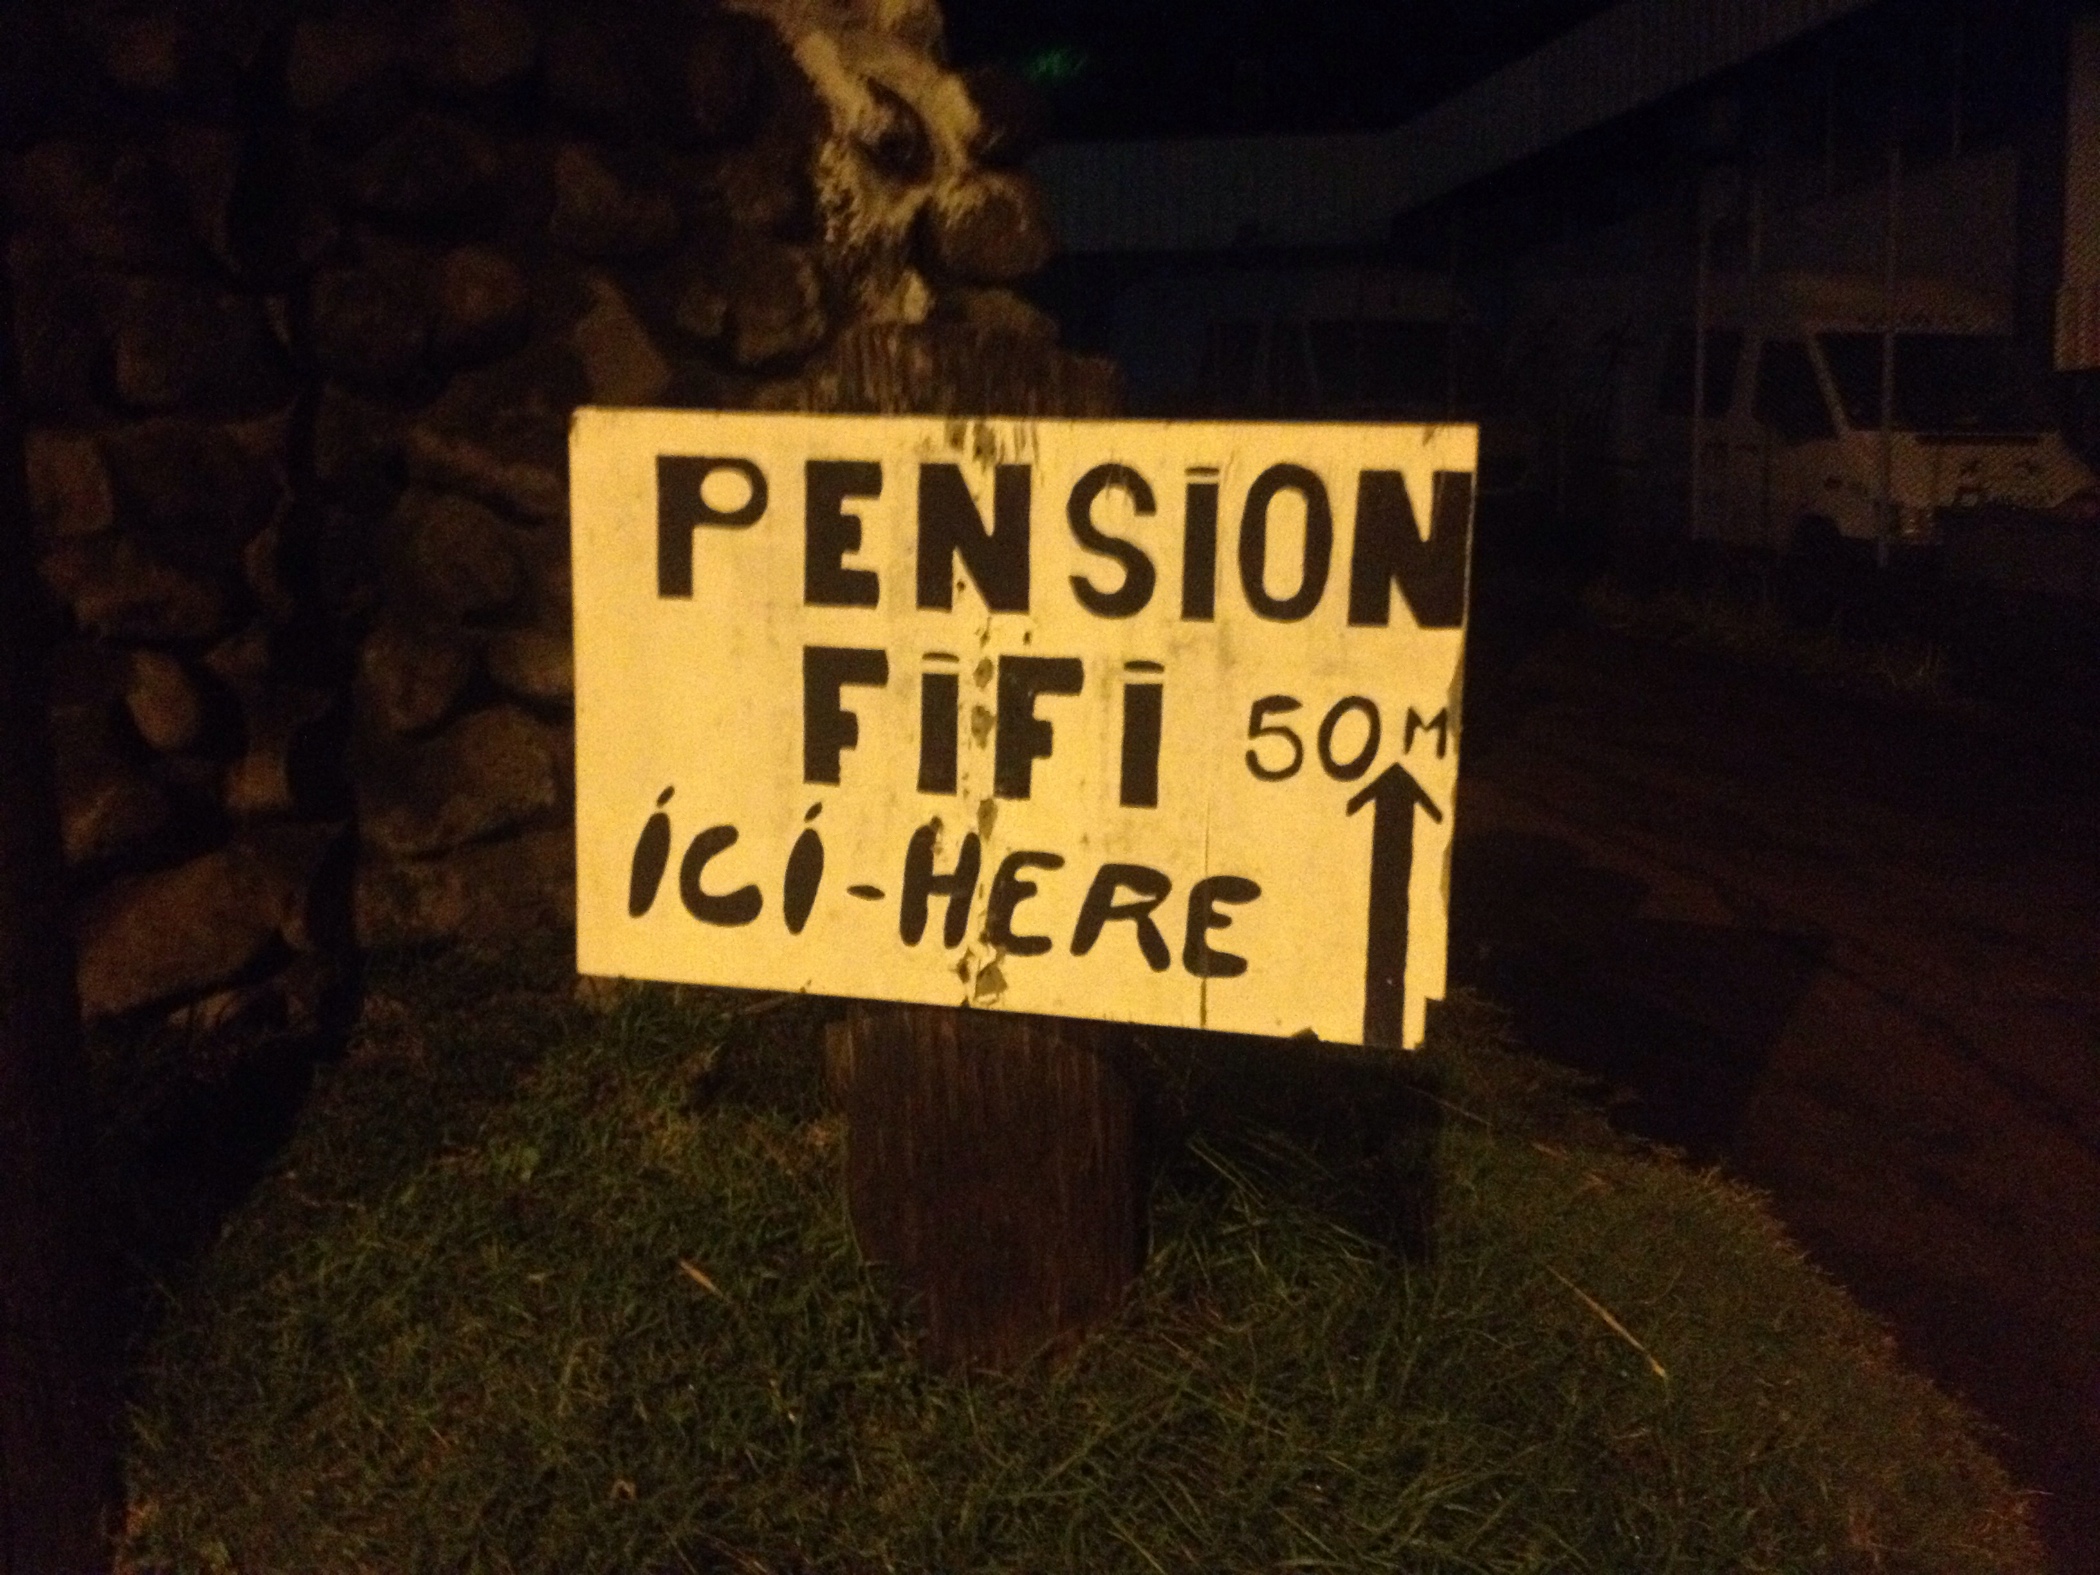 PENSiON
FiFi 50M
iCi-HERE